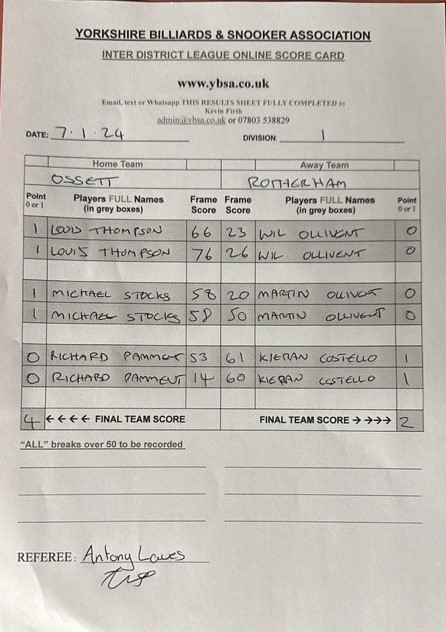 YORKSHIRE BILLIARDS & SNOOKER ASSOCIATION
INTER DISTRICT LEAGUE ONLINE SCORE CARD
www.ybsa.co.uk
Email, text or Whatsapp THIS RESULTS SHEET FULLY COMPLETED to
Kevin Firth
admin@ybsa.co.uk or 07803 538829
DATE: 7.1.24 DIVISION: 1
Home Team Away Team
OSSETT ROTHERHAM
Point 0 or 1 Players FULL Names (in grey boxes) Frame Score Frame Score Players FULL Names (in grey boxes) Point 0 or 1
1 LOUIS THOMPSON 66 23 WIL OLLIVENT 0
1 LOUIS THOMPSON 76 26 WIL OLLIVENT 0
1 MICHAEL STOCKS 58 20 MARTIN OLLIVENT 0
1 MICHAEL STOCKS 58 50 MARTIN OLLIVENT 0
0 RICHARD PAMMENT 53 61 KIERAN COSTELLO 1
0 RICHARD PAMMENT 14 60 KIERAN COSTELLO 1
4 ←←←← FINAL TEAM SCORE FINAL TEAM SCORE →→→→ 2
"ALL" breaks over 50 to be recorded
REFEREE: Antony Lawes